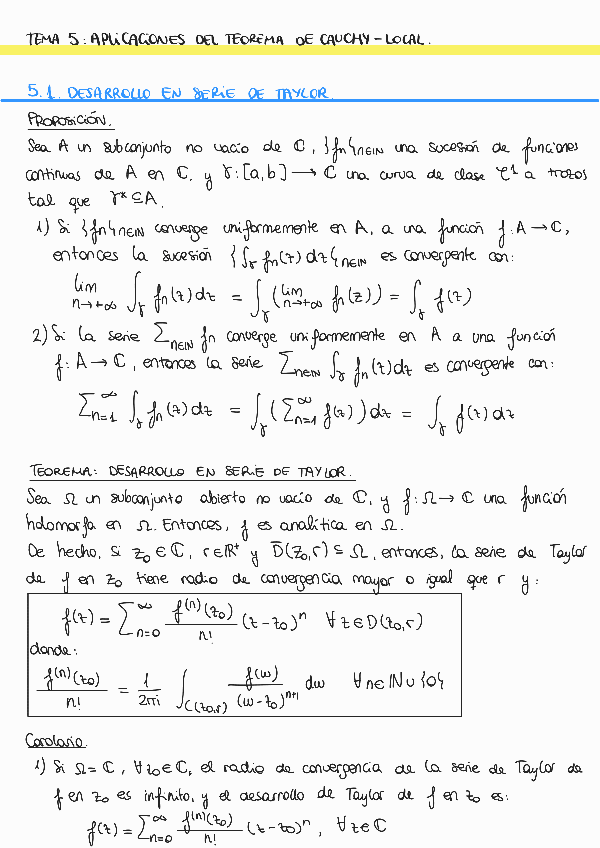 TEMA 5: APLICACIONES DEL TEOREMA DE CAUCHY-LOCAL.
5.1. DESARROLLO EN SERIE DE TAYLOR.
PROPOSICIÓN.
Sea A un subconjunto no vacío de ℂ, {fn}n∈ℕ una sucesión de funciones
continuas de A en ℂ, y γ:[a,b] → ℂ una curva de clase C¹ a trozos
tal que γ* ⊆ A.
1) Si {fn}n∈ℕ converge uniformemente en A, a una función f: A → ℂ,
entonces la sucesión {∫γ fn(z)dz}n∈ℕ es convergente con:
lim n→+∞ ∫γ fn(z)dz = ∫γ (lim n→+∞ fn(z)) = ∫γ f(z)
2) Si la serie ∑n∈ℕ fn converge uniformemente en A a una función
f: A → ℂ, entonces la serie ∑n∈ℕ ∫γ fn(z)dz es convergente con:
∑n=1^∞ ∫γ fn(z)dz = ∫γ (∑n=1^∞ f(z))dz = ∫γ f(z)dz
TEOREMA: DESARROLLO EN SERIE DE TAYLOR.
Sea Ω un subconjunto abierto no vacío de ℂ, y f: Ω → ℂ una función
holomorfa en Ω. Entonces, f es analítica en Ω.
De hecho, si z₀ ∈ ℂ, r∈ℝ⁺ y D̅(z₀,r) ⊆ Ω, entonces, la serie de Taylor
de f en z₀ tiene radio de convergencia mayor o igual que r y:
f(z) = ∑n=0^∞ f⁽ⁿ⁾(z₀)/n! (z-z₀)ⁿ ∀z∈D(z₀,r)
donde:
f⁽ⁿ⁾(z₀)/n! = 1/2πi ∫C(z₀,r) f(w)/(w-z₀)ⁿ⁺¹ dw ∀n∈ℕ∪{0}
Corolario.
1) Si Ω = ℂ, ∀z₀∈ℂ, el radio de convergencia de la serie de Taylor de
f en z₀ es infinito, y el desarrollo de Taylor de f en z₀ es:
f(z) = ∑n=0^∞ f⁽ⁿ⁾(z₀)/n! (z-z₀)ⁿ, ∀z∈ℂ